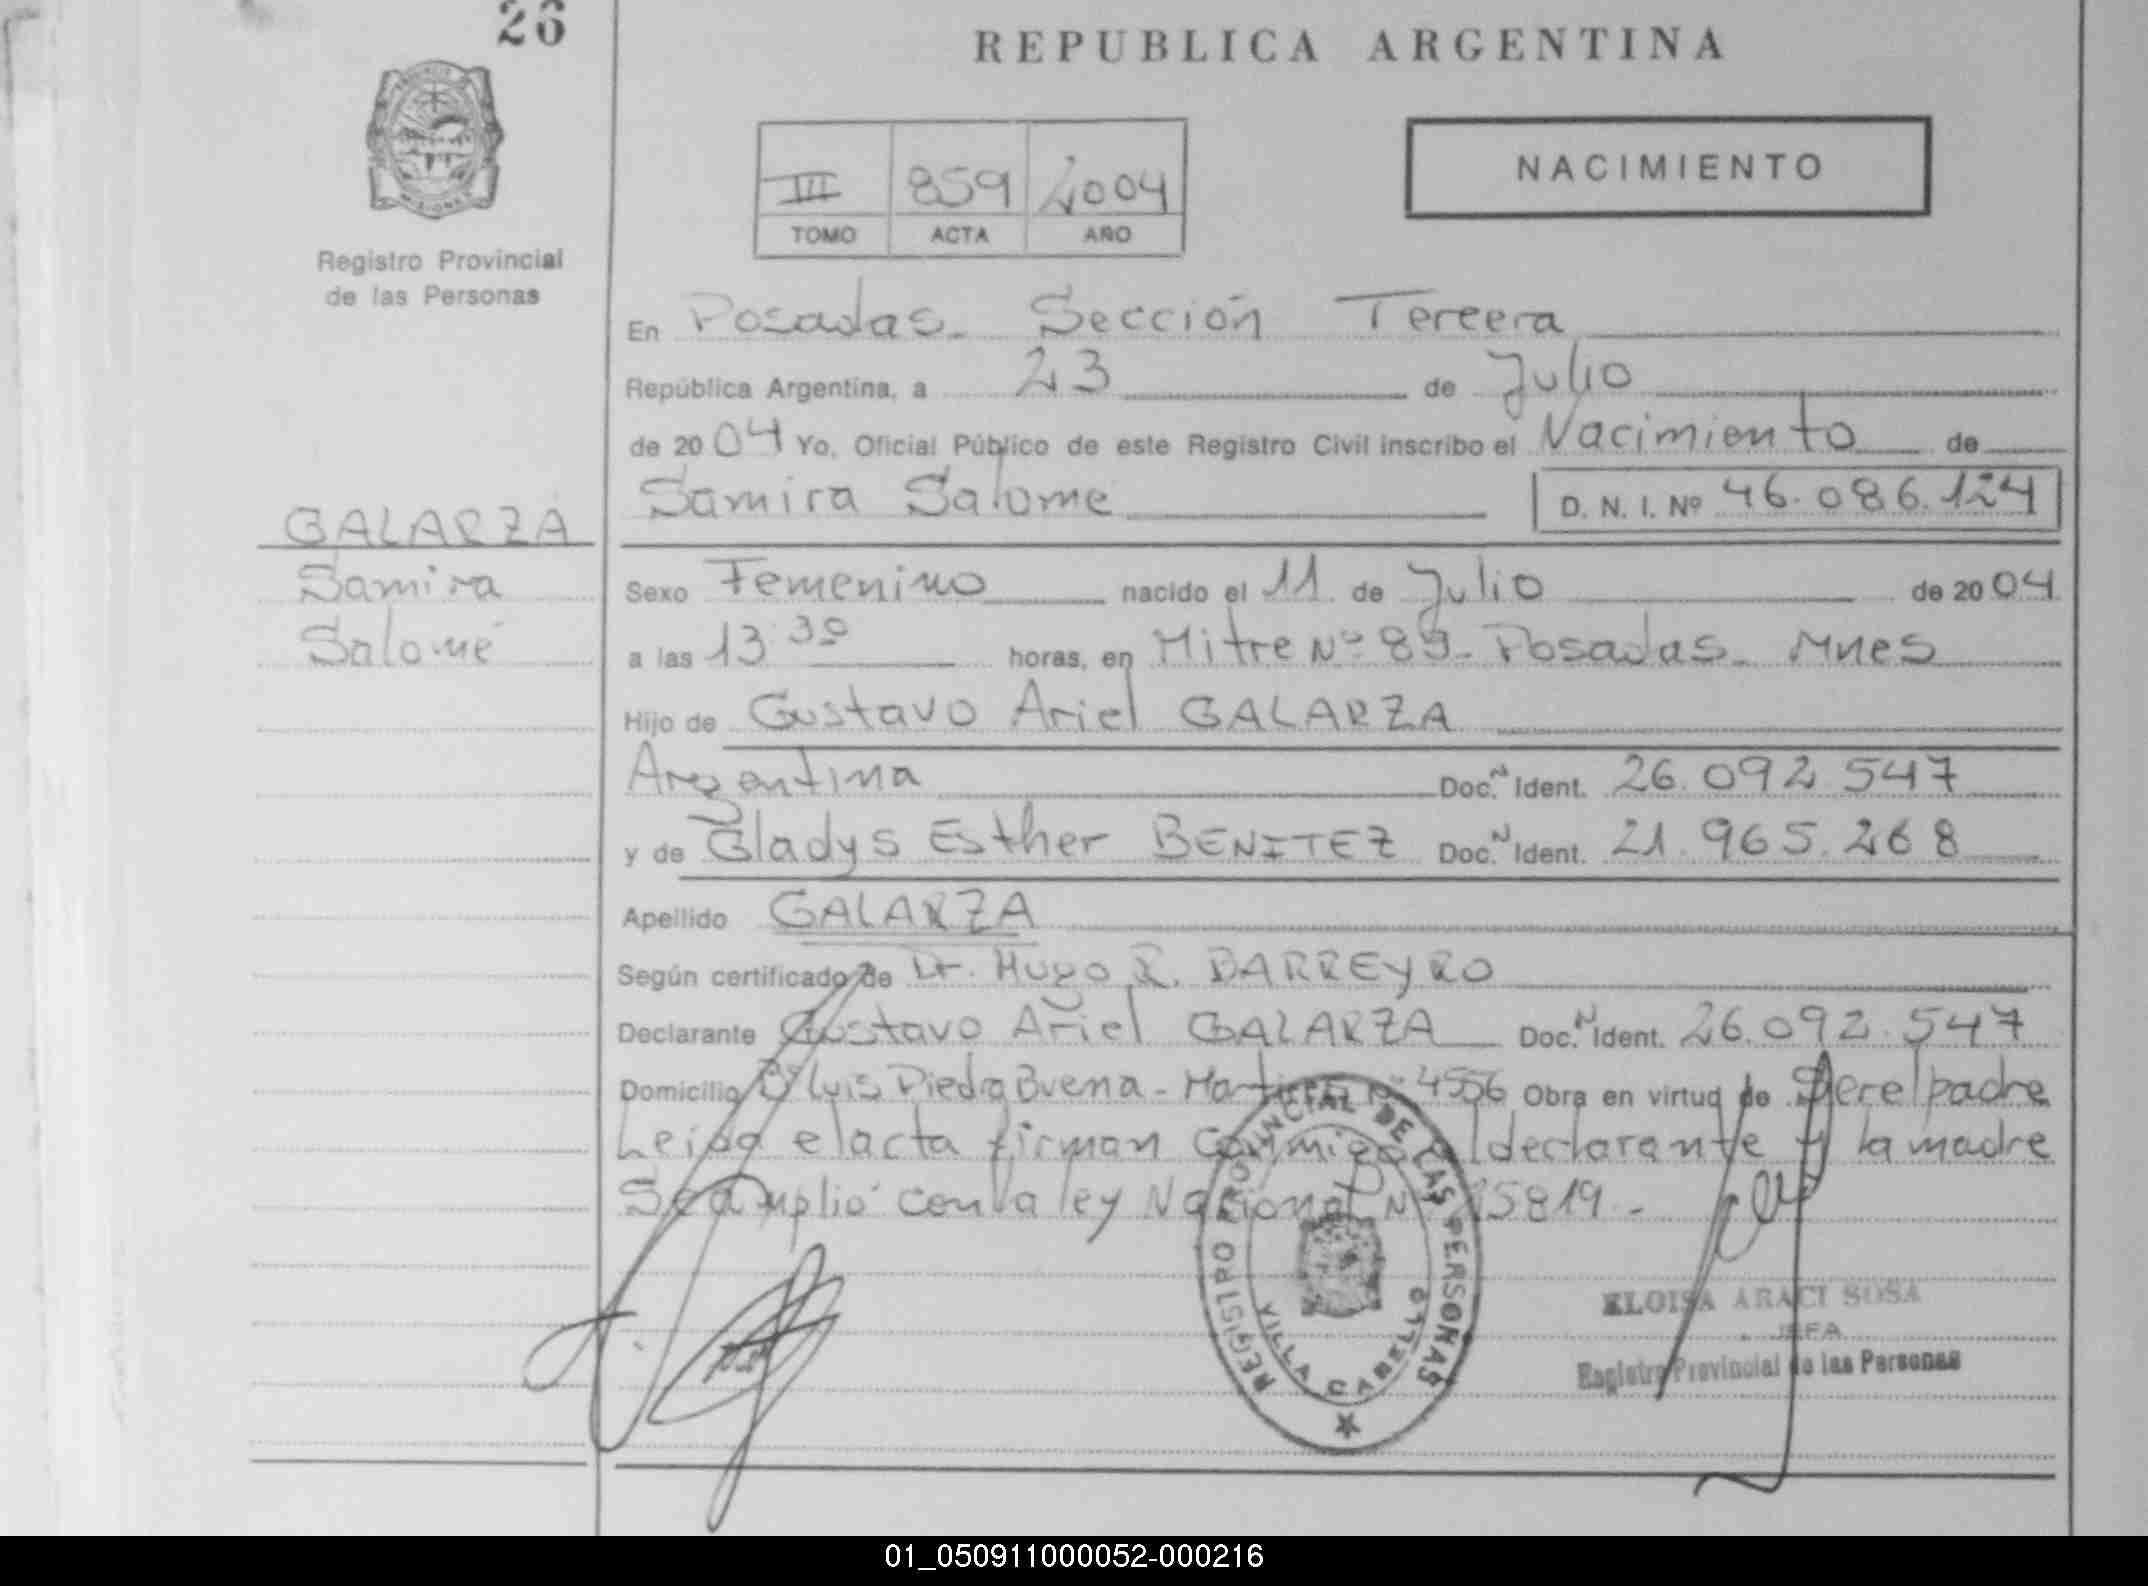 26
REPUBLICA ARGENTINA
NACIMIENTO
III 859 2004
TOMO ACTA AÑO
Registro Provincial
de las Personas
En Posadas - Sección Tercera
República Argentina, a 23 de Julio
de 2004 Yo, Oficial Público de este Registro Civil inscribo el Nacimiento de
Samira Salome D. N. I. Nº 46.086.124
GALARZA
Samira
Salomé
Sexo Femenino nacido el 11 de Julio de 2004
a las 13:30 horas, en Mitre Nº 89 - Posadas - Mnes
Hijo de Gustavo Ariel GALARZA
Argentina Doc. N Ident. 26.092.547
y de Gladys Esther BENITEZ Doc. N Ident. 21.965.268
Apellido GALARZA
Según certificado de Dr. Hugo R. BARREYRO
Declarante Gustavo Ariel GALARZA Doc. N Ident. 26.092.547
Domicilio Bº Luis Piedra Buena - Nº 4556 Obra en virtud de Ser el padre
Leida el acta firman conmigo el declarante y la madre
Se amplió con la ley Nacional Nº 25819.-
REGISTRO PROVINCIAL DE LAS PERSONAS
VILLA CABELLO
ELOISA ARACI SOSA
JEFA
Registro Provincial de las Personas
01_050911000052-000216